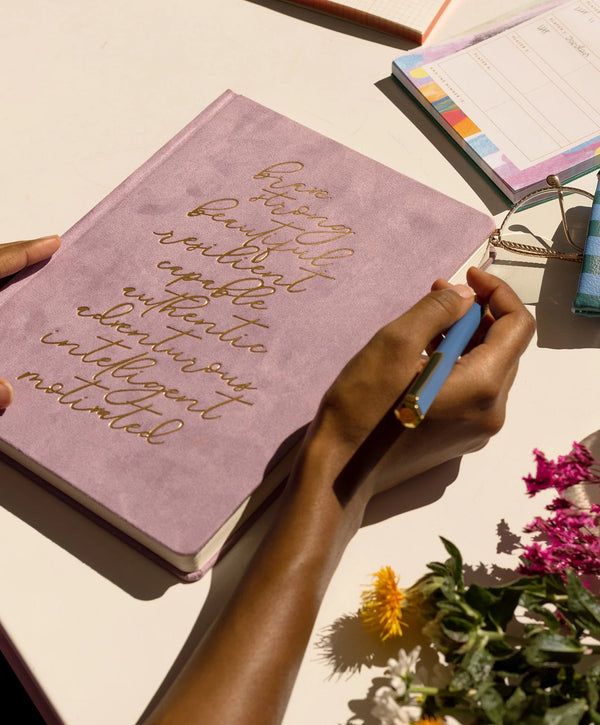 brave
strong
beautiful
resilient
capable
authentic
adventurous
intelligent
motivated